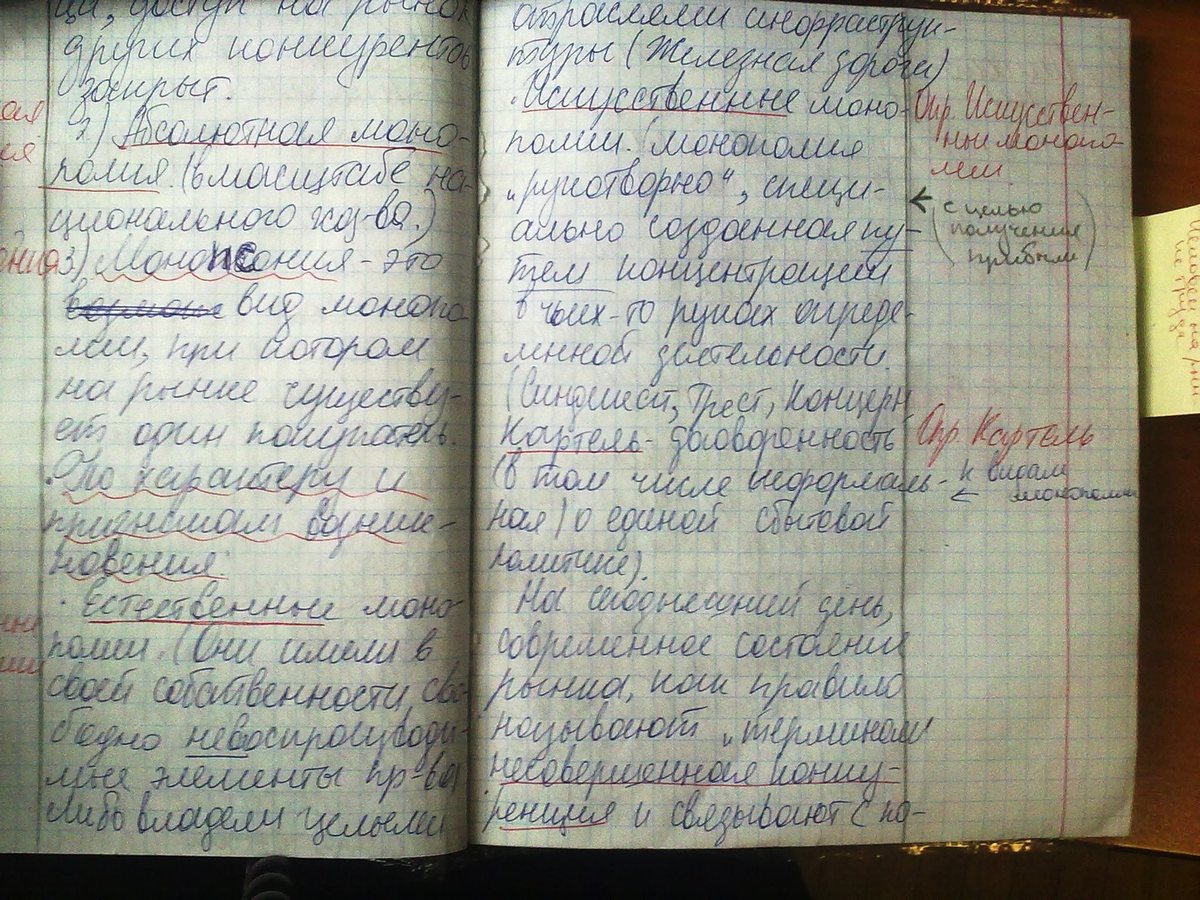 ци, доступ на рынок
других конкурентов
закрыт.
2) Абсолютная моно-
полия. (в масштабе на-
ционального хоз-ва.)
3) Монопсония - это
вид монопо-
лии, при котором
на рынке существу-
ет один покупатель.
По характеру и
причинам возник-
новения
· Естественные моно-
полии. (Они имели в
своей собственности сво-
бодно невоспроизводи-
мые элементы пр-ва,
либо владели целыми
отраслями инфраструк-
туры (Железная дорога)
· Искусственные моно-
полии. (монополия
„рукотворно“, специ-
ально созданная пу-
тем концентрации
в чьих-то руках опреде-
ленной деятельности.
(Синдикат, Трест, Концерн
Картель - договоренность
(в том числе неформаль-
ная) о единой сбытовой
политике).
На сегодняшний день,
современное состояние
рынка, как правило
называют „термином
несовершенная конку-
ренция и связывают с по-
Опр. Искуствен-
ные монопо-
лии.
с целью
получения
прибыли
Опр. Картель
к видам
монополии